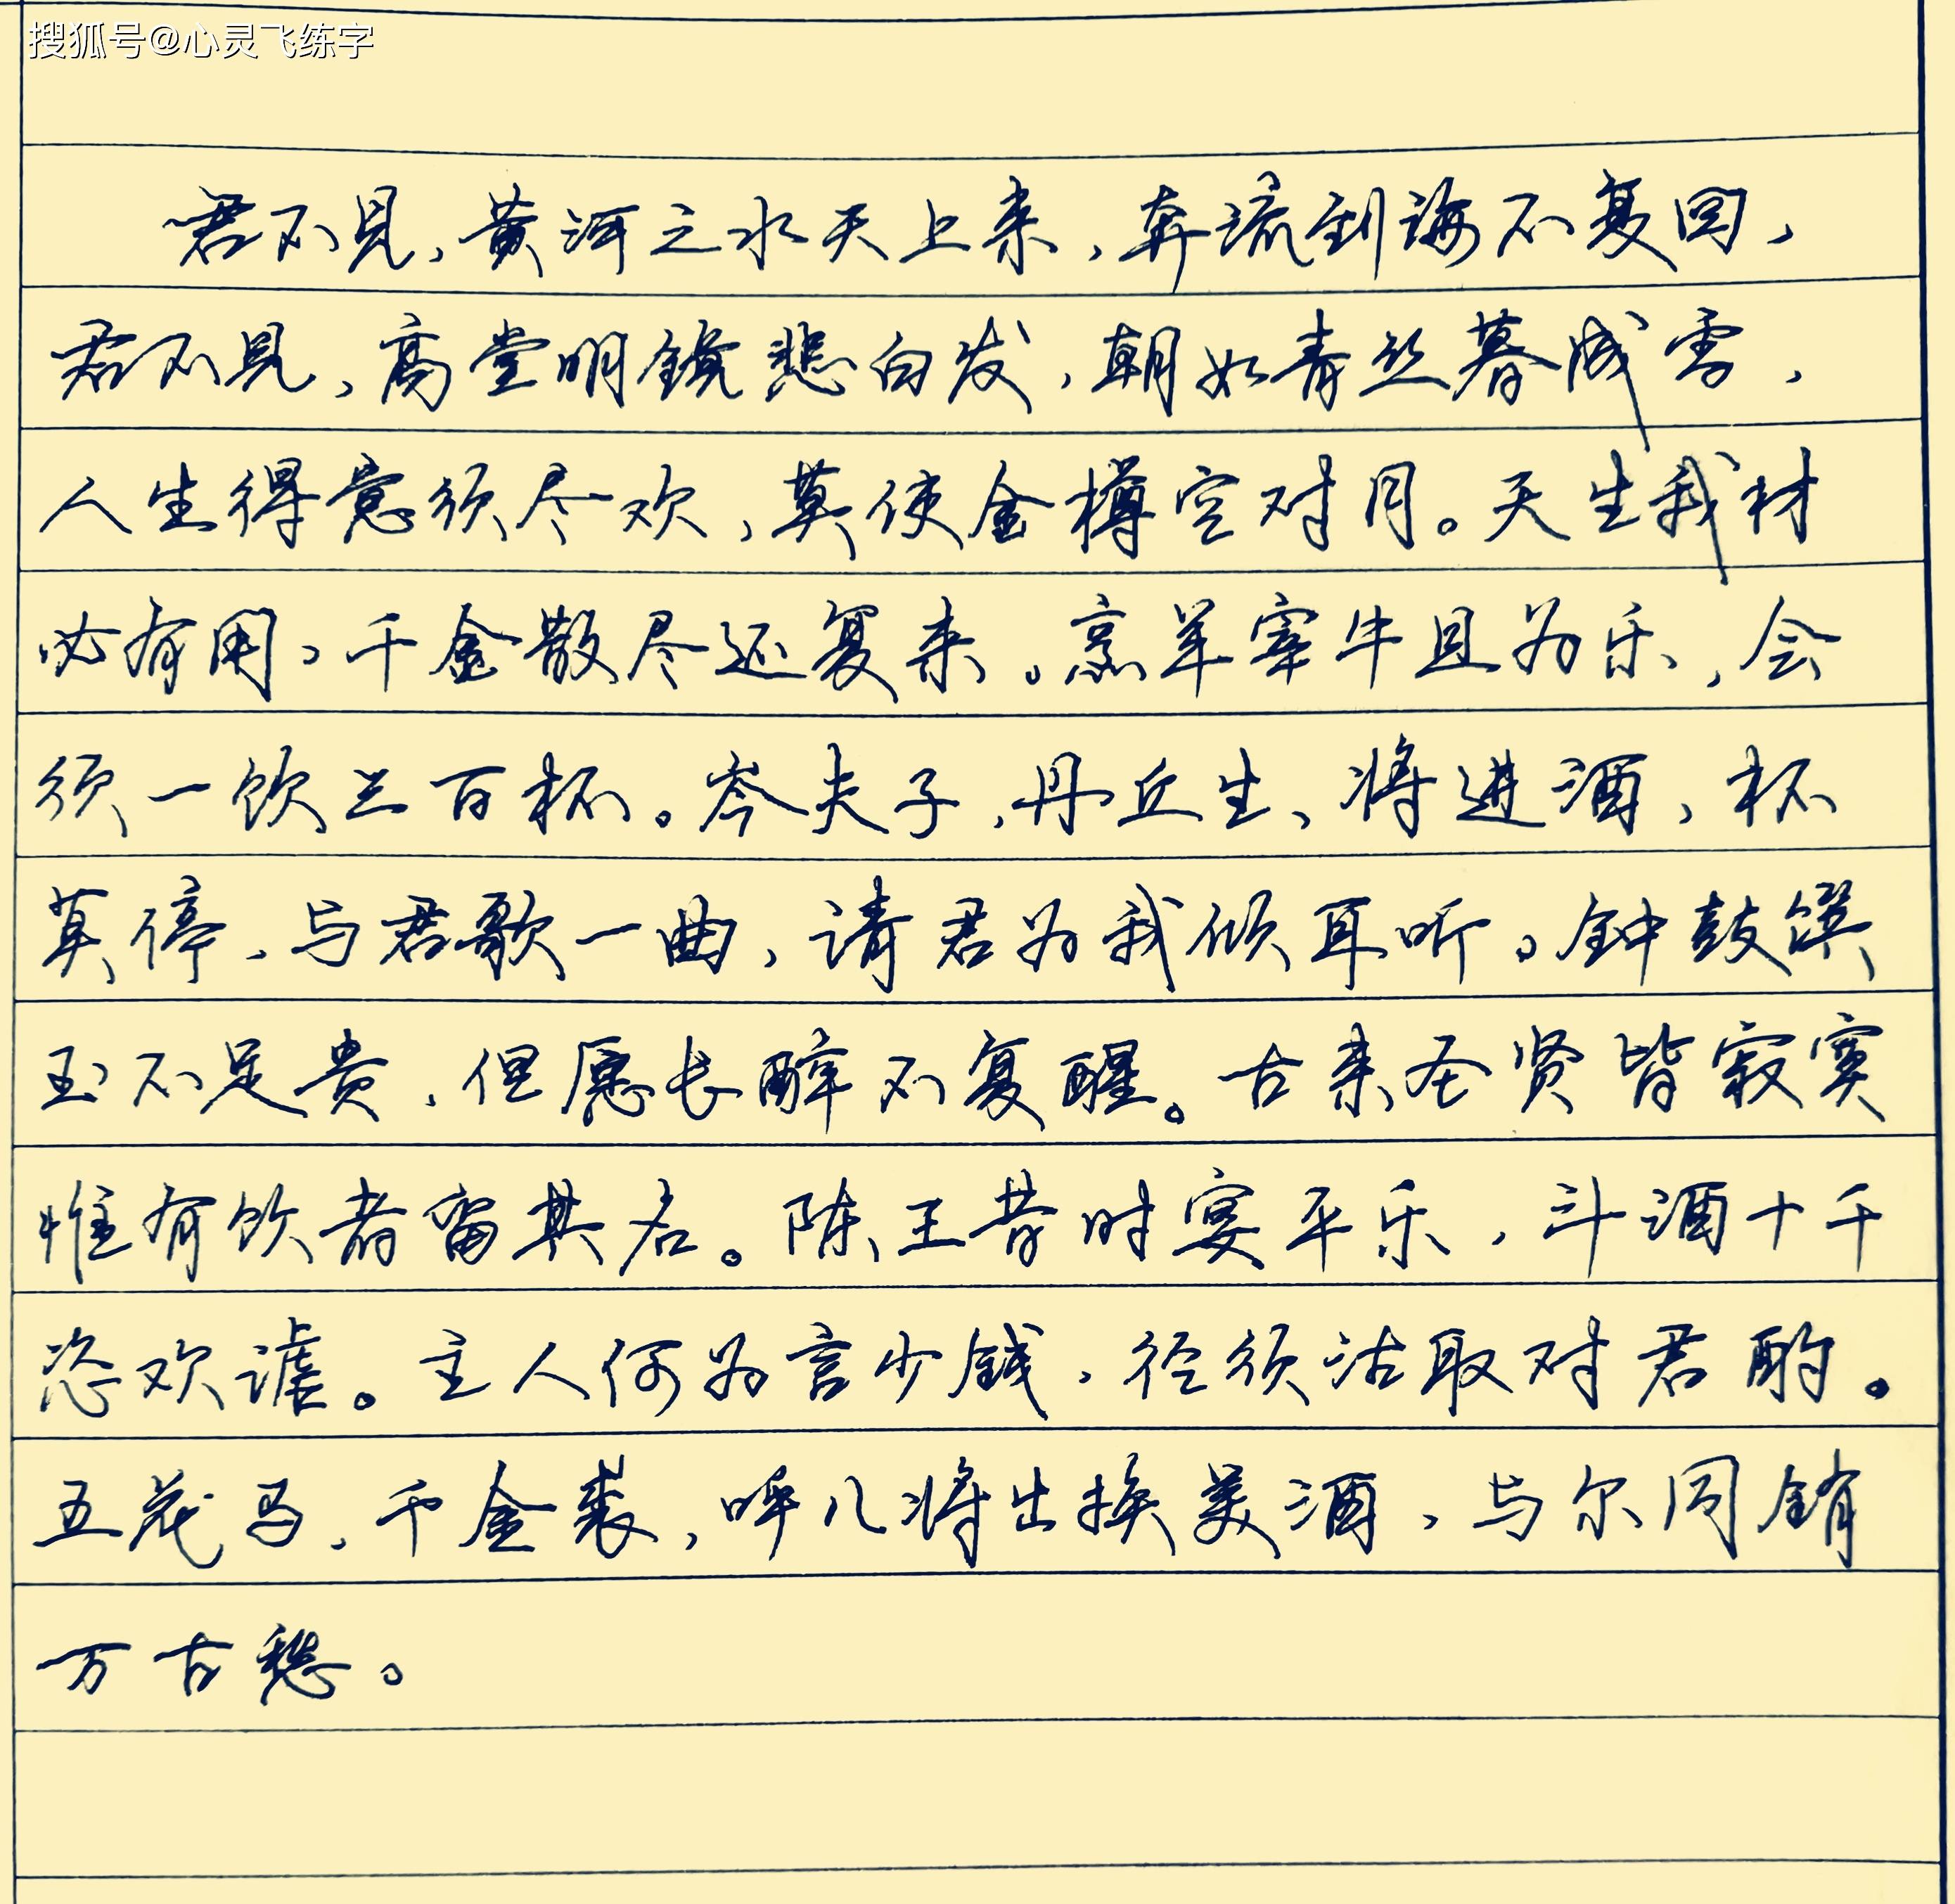 搜狐号@心灵飞练字
君不见,黄河之水天上来,奔流到海不复回,
君不见,高堂明镜悲白发,朝如青丝暮成雪,
人生得意须尽欢,莫使金樽空对月。天生我材
必有用,千金散尽还复来。烹羊宰牛且为乐,会
须一饮三百杯。岑夫子,丹丘生、将进酒,杯
莫停,与君歌一曲,请君为我倾耳听。钟鼓馔
玉不足贵,但愿长醉不复醒。古来圣贤皆寂寞
惟有饮者留其名。陈王昔时宴平乐,斗酒十千
恣欢谑。主人何为言少钱,径须沽取对君酌。
五花马,千金裘,呼儿将出换美酒,与尔同销
万古愁。